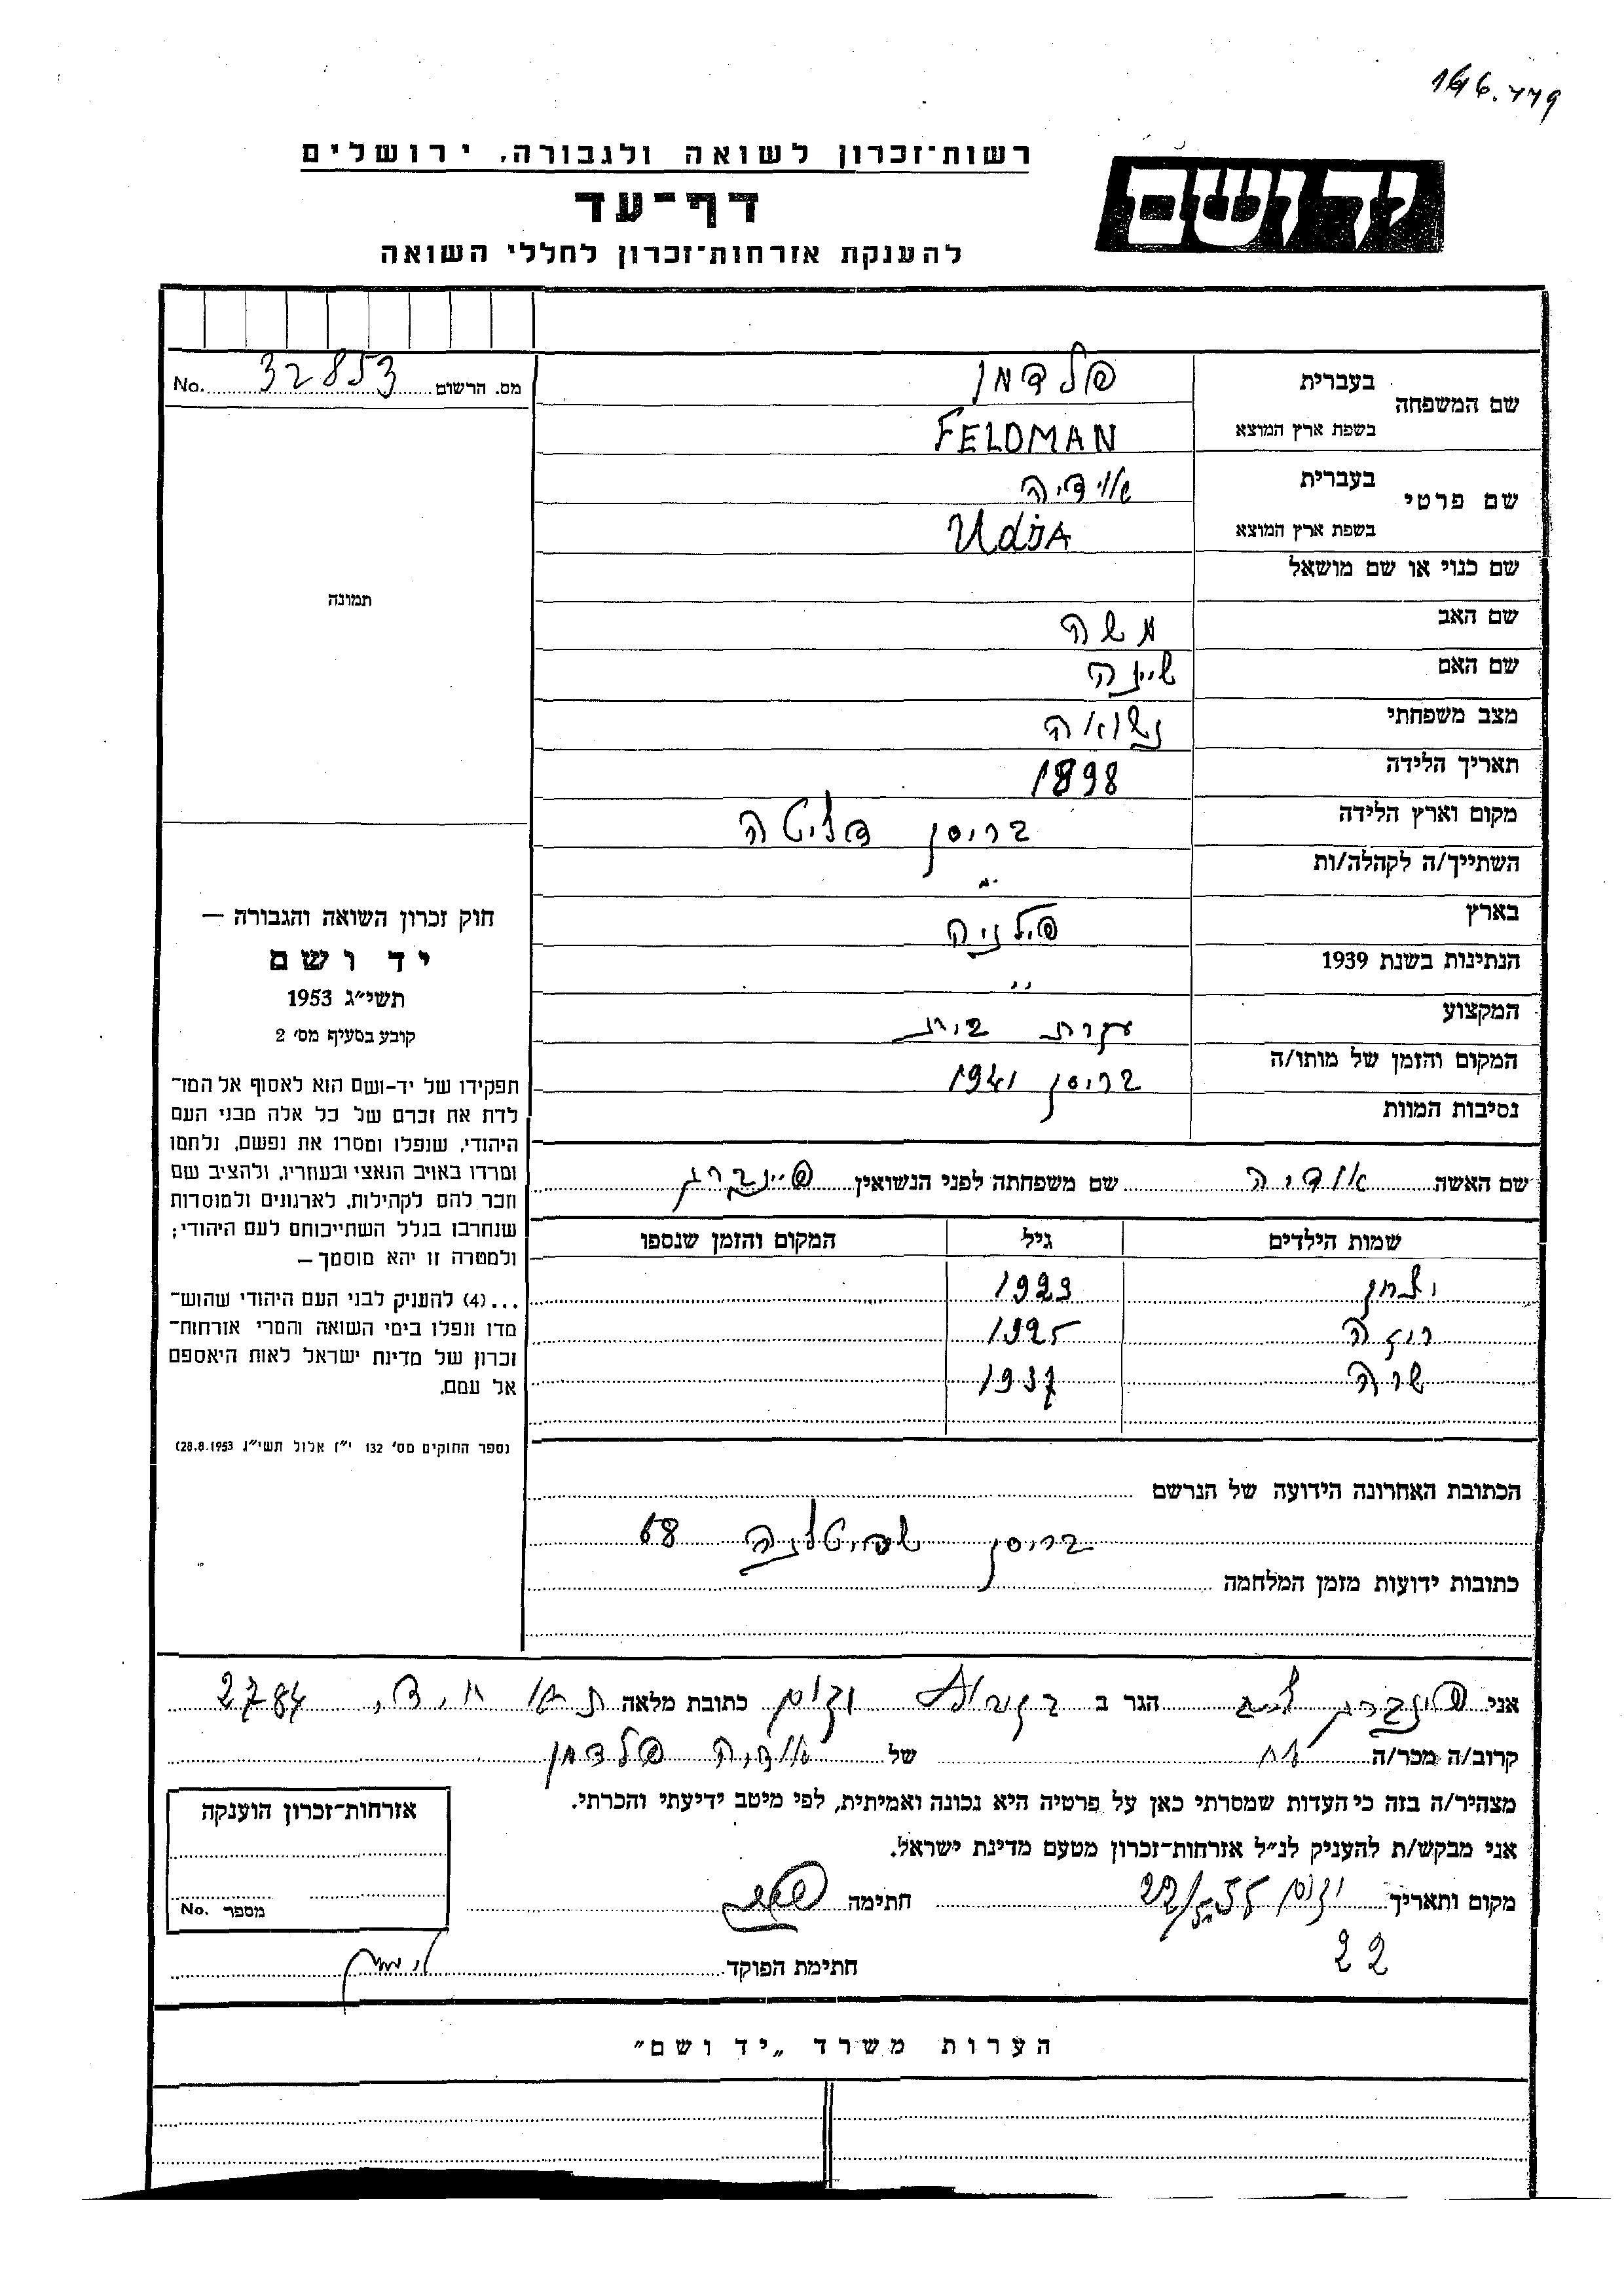 166.779
רשות־זכרון לשואה ולגבורה, ירושלים
יד ושם
דף־עד
להענקת אזרחות־זכרון לחללי השואה
מס. הרשום 32853 No.
שם המשפחה
בעברית פלדמן
בשפת ארץ המוצא FELDMAN
שם פרטי
בעברית
בשפת ארץ המוצא
שם כנוי או שם מושאל
שם האב משה
שם האם שיינה
מצב משפחתי נשואה
תאריך הלידה 1898
מקום וארץ הלידה בריסק דליטה
השתייך/ה לקהלה/ות "
בארץ פולניה
הנתינות בשנת 1939 "
המקצוע עקרת בית
המקום והזמן של מותו/ה בריסק 1941
נסיבות המוות
תמונה
חוק זכרון השואה והגבורה —
יד ושם
תשי״ג 1953
קובע בסעיף מס׳ 2
תפקידו של יד-ושם הוא לאסוף אל המו־
לדת את זכרם של כל אלה מבני העם
היהודי, שנפלו ומסרו את נפשם, נלחמו
ומרדו באויב הנאצי ובעוזריו, ולהציב שם
וזכר להם לקהילות, לארגונים ולמוסדות
שנחרבו בגלל השתייכותם לעם היהודי;
ולמטרה זו יהא מוסמך —
...(4) להעניק לבני העם היהודי שהוש־
מדו ונפלו בימי השואה והמרי אזרחות־
זכרון של מדינת ישראל לאות היאספם
אל עמם.
(ספר החוקים מס׳ 132 י״ז אלול תשי״ג 28.8.1953)
שם האשה אודיה שם משפחתה לפני הנשואין פיינברג
שמות הילדים גיל המקום והזמן שנספו
1923
רוזה 1925
שרה 1937
הכתובת האחרונה הידועה של הנרשם
בריסק 68
כתובות ידועות מזמן המלחמה
אני פינברג הגר ב כתובת מלאה ת.ד. 2784
קרוב/ה מכר/ה אח של אודיה פלדמן
מצהיר/ה בזה כי העדות שמסרתי כאן על פרטיה היא נכונה ואמיתית, לפי מיטב ידיעתי והכרתי.
אני מבקש/ת להעניק לנ״ל אזרחות־זכרון מטעם מדינת ישראל.
מקום ותאריך חתימה
22
חתימת הפוקד
אזרחות־זכרון הוענקה
מספר No.
הערות משרד „יד ושם״